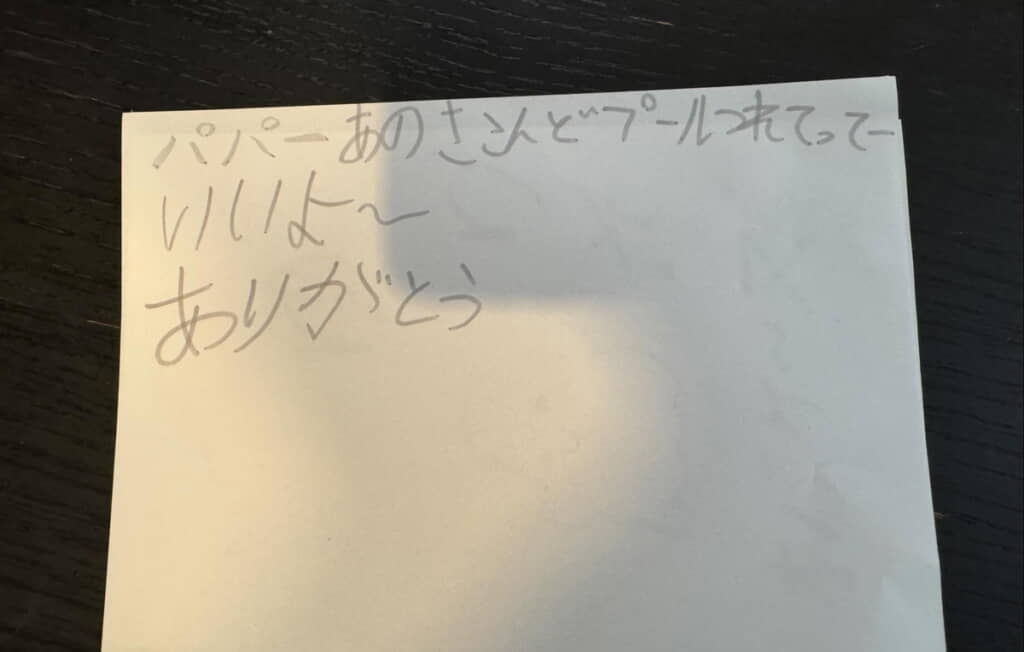 パパーあのさこんどプールつれてってー
いいよ～
ありがとう